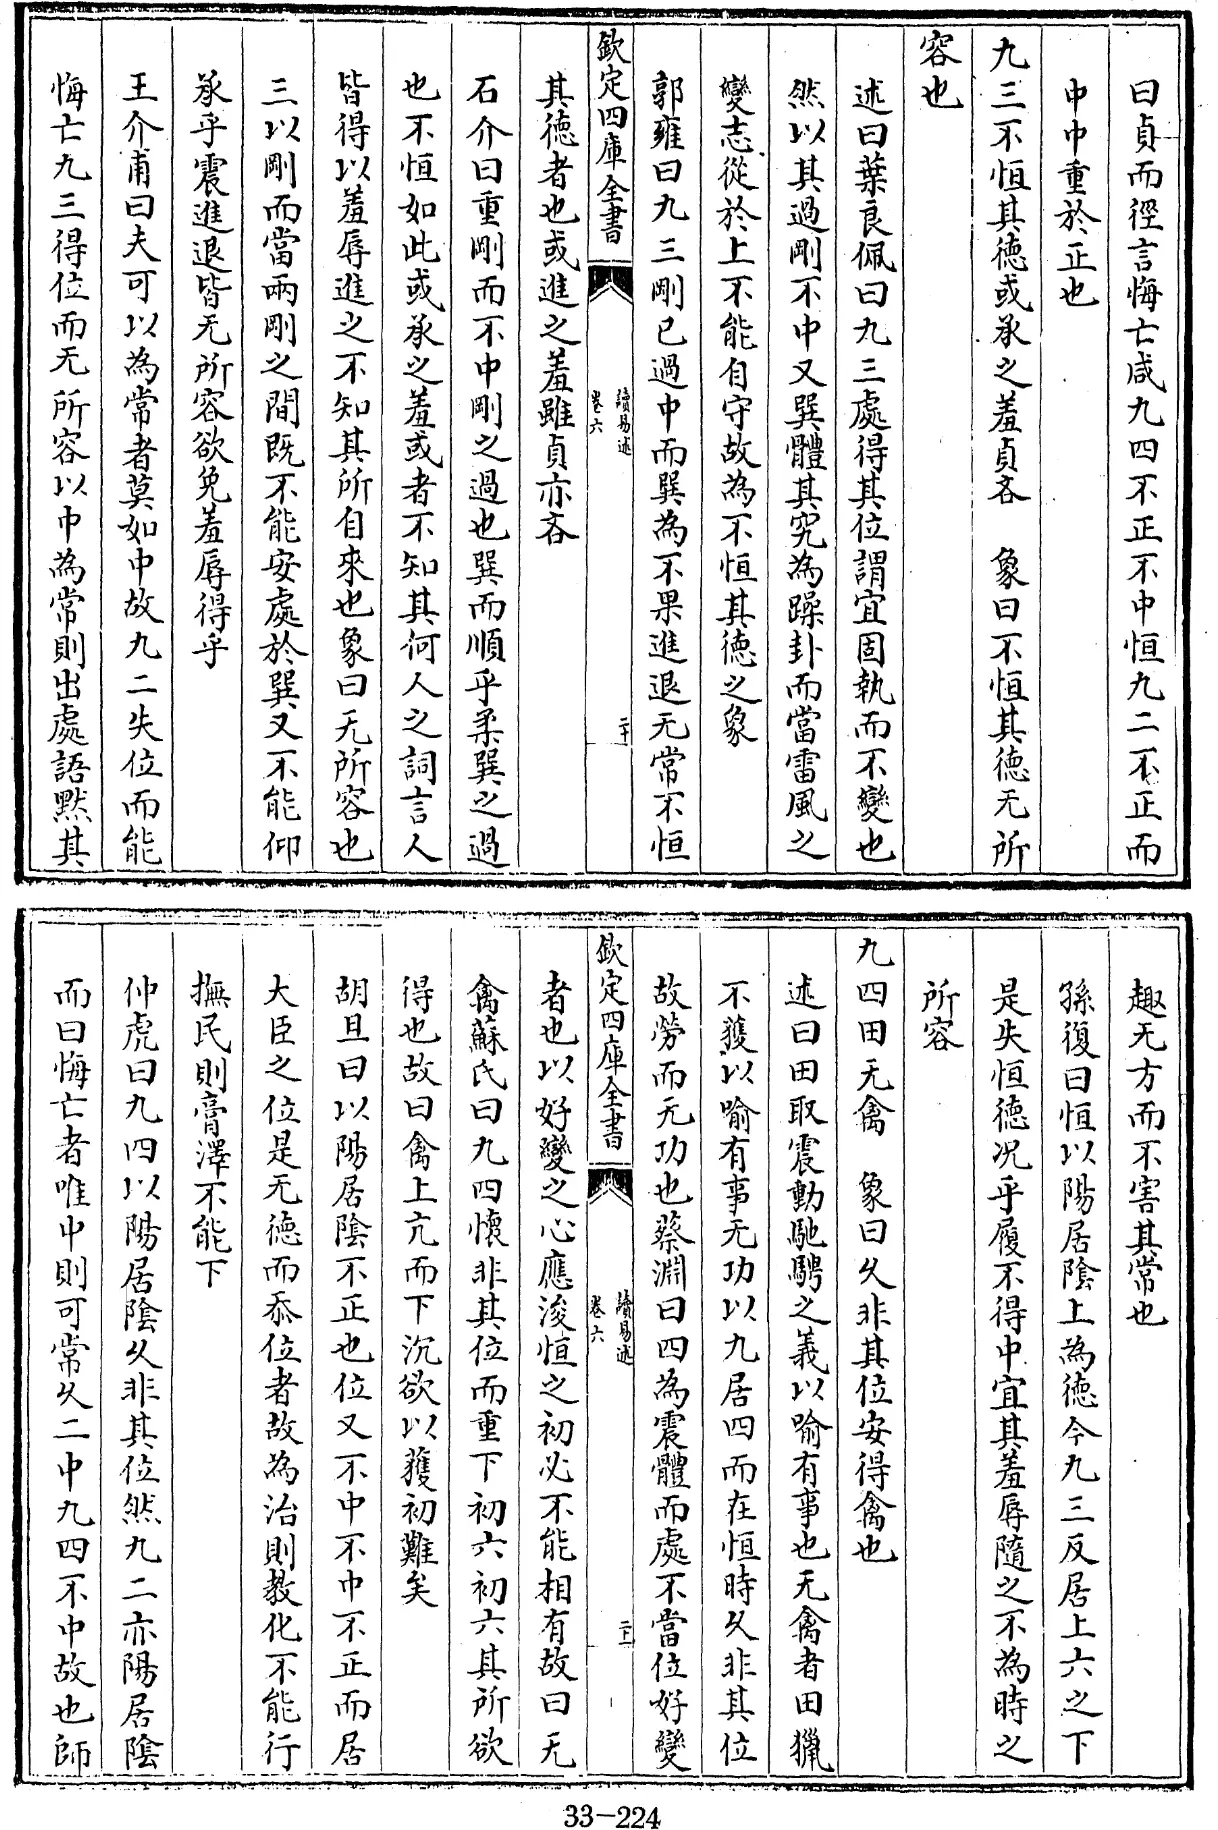 曰貞而徑言悔亡咸九四不正不中恒九二不正而
中中重於正也
九三不恒其德或承之羞貞吝　象曰不恒其德无所
容也
述曰葉良佩曰九三處得其位謂宜固執而不變也
然以其過剛不中又巽體其究為躁卦而當雷風之
變志從於上不能自守故為不恒其德之象
郭雍曰九三剛已過中而巽為不果進退无常不恒
欽定四庫全書
讀易述
卷六
二十
其德者也或進之羞雖貞亦吝
石介曰重剛而不中剛之過也巽而順乎柔巽之過
也不恒如此或承之羞或者不知其何人之詞言人
皆得以羞辱進之不知其所自來也象曰无所容也
三以剛而當兩剛之間既不能安處於巽又不能仰
承乎震進退皆无所容欲免羞辱得乎
王介甫曰夫可以為常者莫如中故九二失位而能
悔亡九三得位而无所容以中為常則出處語默其
趣无方而不害其常也
孫復曰恒以陽居陰上為德今九三反居上六之下
是失恒德况乎履不得中宜其羞辱隨之不為時之
所容
九四田无禽　象曰久非其位安得禽也
述曰田取震動馳騁之義以喻有事也无禽者田獵
不獲以喻有事无功以九居四而在恒時久非其位
故勞而无功也蔡淵曰四為震體而處不當位好變
欽定四庫全書
讀易述
卷六
二十一
者也以好變之心應浚恒之初必不能相有故曰无
禽蘇氏曰九四懷非其位而重下初六初六其所欲
得也故曰禽上亢而下沉欲以獲初難矣
胡旦曰以陽居陰不正也位又不中不中不正而居
大臣之位是无德而忝位者故為治則教化不能行
撫民則膏澤不能下
仲虎曰九四以陽居陰久非其位然九二亦陽居陰
而曰悔亡者唯中則可常久二中九四不中故也師
33-224